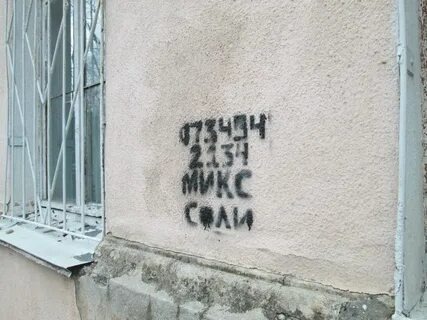 073494
2134
МИКС
СОЛИ